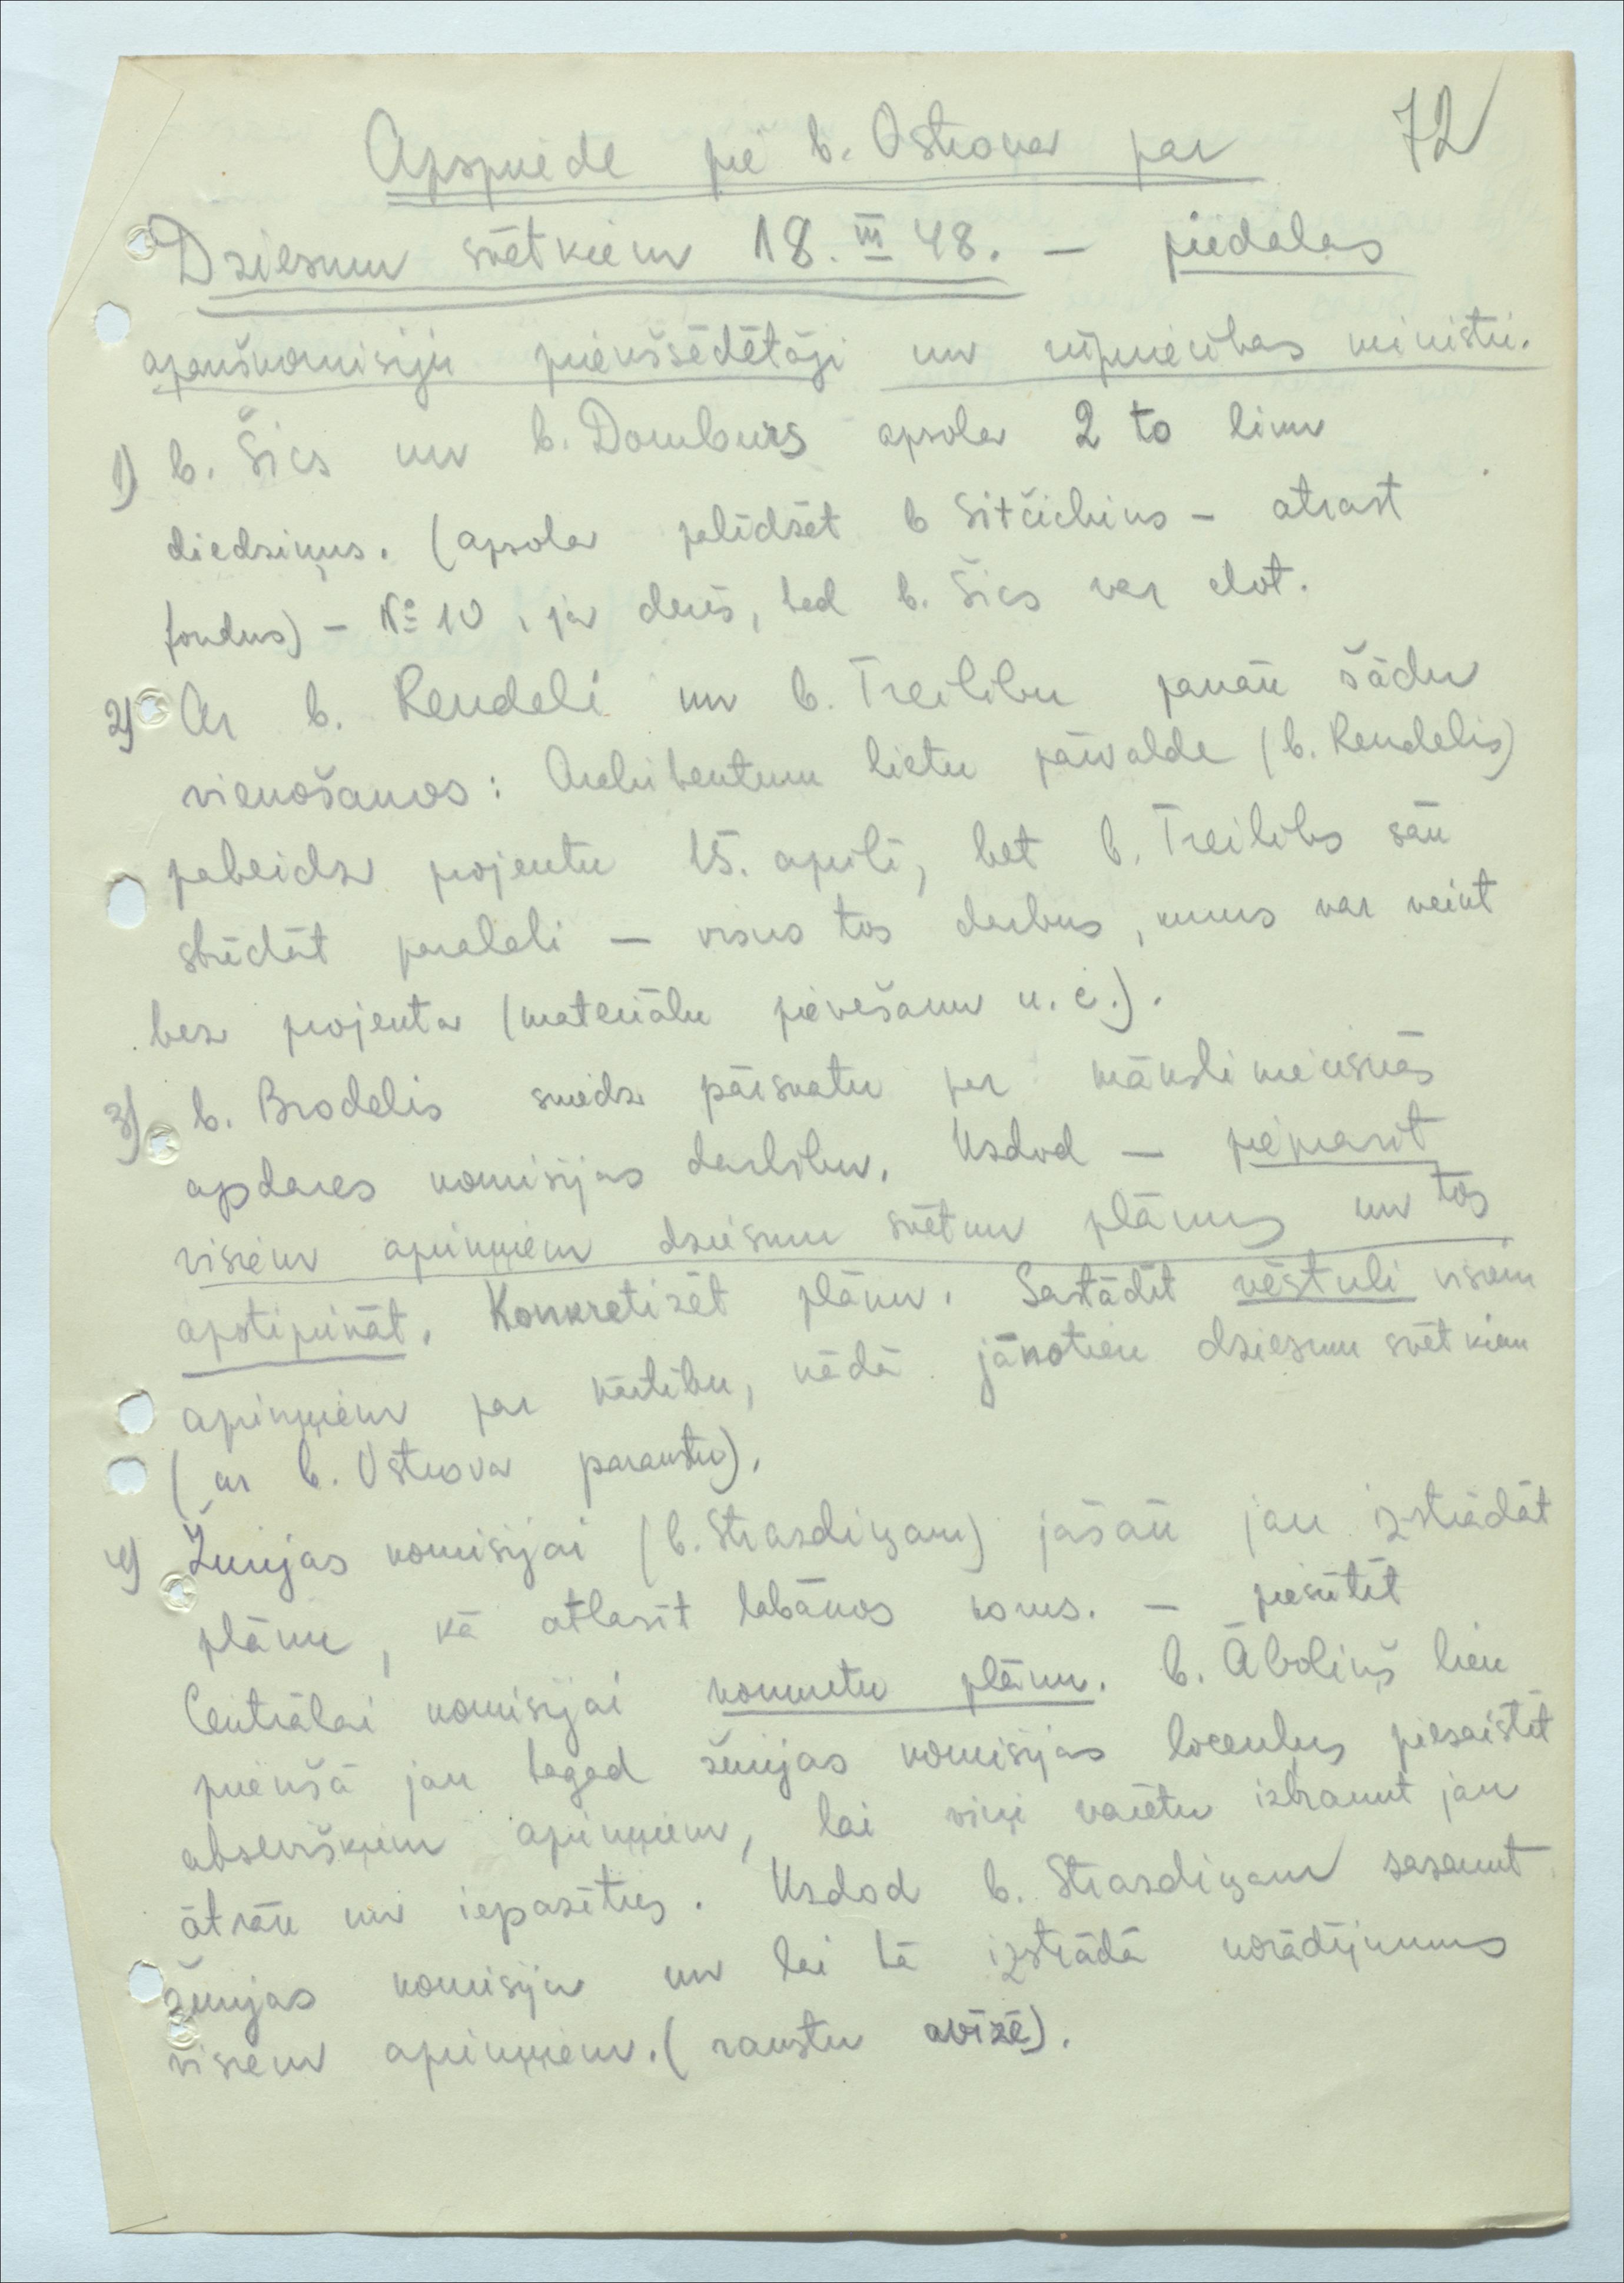 72
Apspriede pie b. Ostrova par
Dziesmu svētkiem 18. III 48. – piedalas
apakškomisiju priekšsēdētāji un rūpniecības ministri.
1) b. Šics un b. Domburs apsola 2 to linu
diedziņus. (apsola palīdzēt b – atrast
fondus) – № 10, ja derēs, tad b. Šics var dot.
2) Ar b. Rendeli un b. Treilibu panāk šādu
vienošanos: Architektūru lietu pārvalde (b. Rendelis)
pabeidz projektu 15. aprilī, bet b. Treilibs sāk
strādāt paraleli – visus tos darbus, kurus var veikt
bez projekta (materiālu pievešanu u. c.).
3) b. Brodelis sniedz pārskatu par mākslinieciskās
apdares komisijas darbību. Uzdod – pieprasīt
visiem apriņķiem dziesmu svētku plānus un tos
apstiprināt. Konkretizēt plānu. Sastādīt vēstuli visiem
apriņķiem par kārtību, kādā jānotiek dziesmu svētkiem
(ar b. Ostrova parakstu).
4) Žurijas komisijai (b. Strazdiņam) jāsāk jau izstrādāt
plānu, kā atlasīt labākos korus. – piesūtīt
Centrālai komisijai konkrētu plānu. b. Āboliņš liek
priekšā jau tagad žurijas komisijas locekļus piesaistīt
atsevišķiem apriņķiem, lai viņi varētu izbraukt jau
ātrāk un iepazīties. Uzdod b. Strazdiņam sasaukt
žurijas komisiju un lai tā izstrādā norādījumus
visiem apriņķiem. (rakstu avīzē).